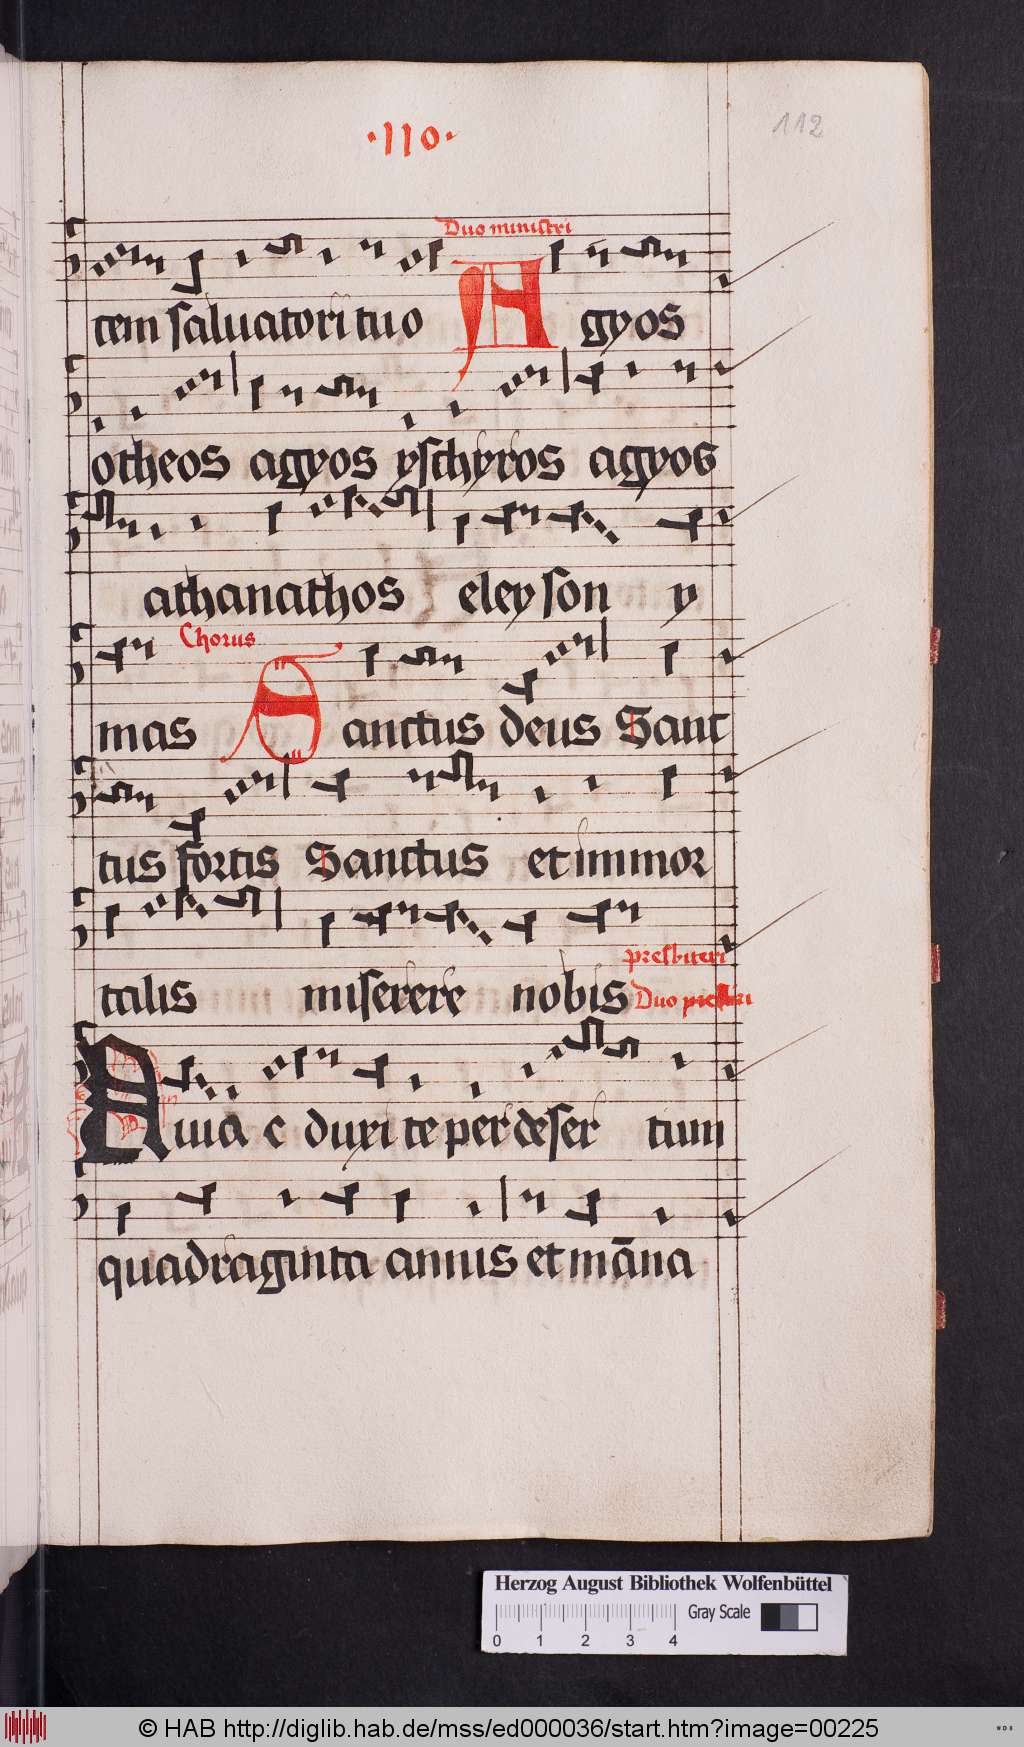 ·110·
112
Duo ministri
tem saluatori tuo Agyos
otheos agyos yschyros agyos
athanathos eleyson y
Chorus
mas Sanctus deus Sanc
tus fortis Sanctus et immor
presbiteri
talis miserere nobis Duo
Quia eduxi te per deser tum
quadraginta annis et mãna
Herzog August Bibliothek Wolfenbüttel
0 1 2 3 4 Gray Scale
© HAB http://diglib.hab.de/mss/ed000036/start.htm?image=00225